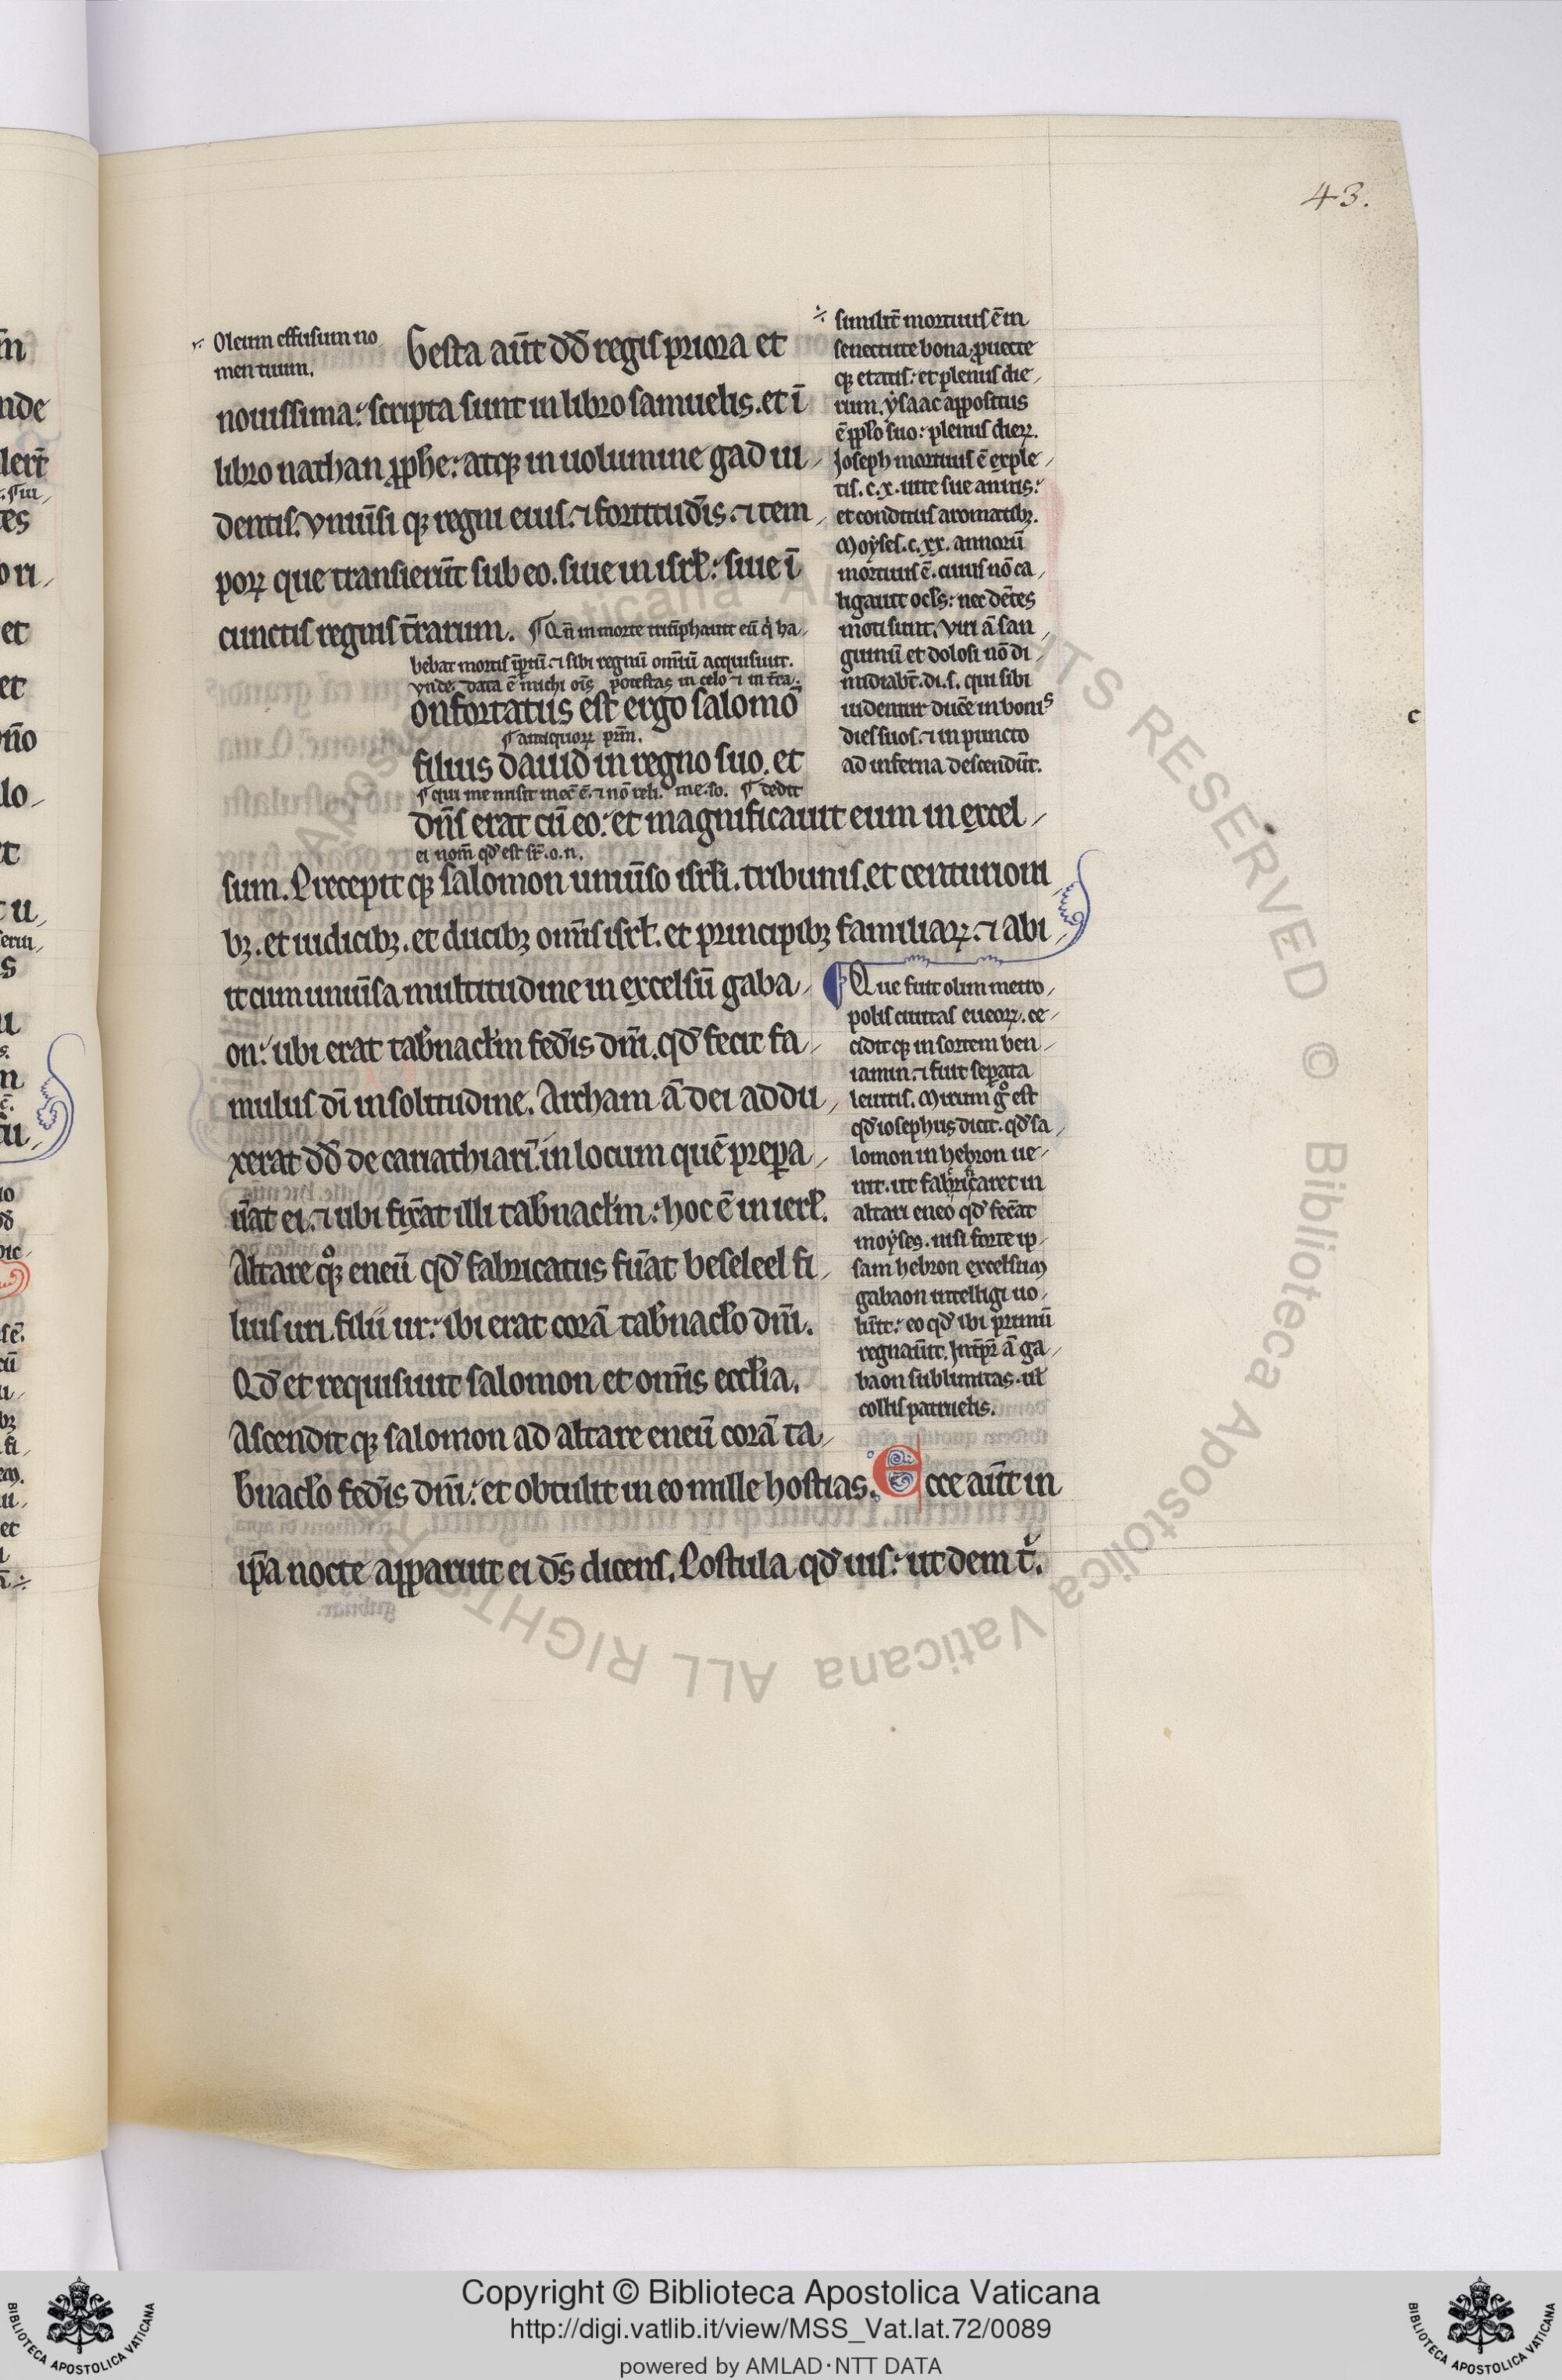 43.
Oleum effusum no
men tuum.
Gesta aūt dd̄ regis priora et
nouissima: scripta sunt in libro samuelis. et ī
libro nathan ꝓphe: atqꝫ in uolumine gad ui
dentis. Vniūsi qꝫ regni eius. ⁊ fortitud̄is. ⁊ tem
porꝝ que transierūt sub eo. siue in isrł: siue ī
cunctis regnis t̄rarum. ¶ Qn̄ in morte triūphauit eū q̇ ha
bebat mortis īꝑiū. ⁊ sibi regnū om̄iū acquisiuit.
vnde. data ē michi oīs potestas in celo ⁊ in t̄ra.
onfortatus est ergo salomō
¶ antiquorꝝ
filius dauid in regno suo. et
¶ qui me misit mec̄ ē. ⁊ nō reli. me. so. ¶ dedit
dn̄s erat cū eo: et magnificauit eum in excel
ei nom̄ qd̄ est sr̄. o. n.
sum. Precepit qꝫ salomon uniūso isrłi. tribunis. et centurioni
bꝫ. et iudicibꝫ. et ducibꝫ om̄is isrł. et principibꝫ familiarꝝ. ⁊ abi
it cum uniūsa multitudine in excelsū gaba
on: ubi erat tab̄nacłm fed̄is dn̄i. qd̄ fecit fa
mulus dī in solitudine. Archam ā dei addu
xerat dd̄ de cariathiarī. in locum quē prepa
ūat ei. ⁊ ubi fix̄at illi tab̄nacłm: hoc ē in ierł.
Altare qꝫ eneū qd̄ fabricatus fūat beseleel fi
lius uri filii ur: ibi erat corā tab̄nacło dn̄i.
Qd̄ et requisiuit salomon et om̄is eccłia.
Ascendit qꝫ salomon ad altare eneū corā ta
b̄nacło fed̄is dn̄i: et obtulit in eo mille hostias. Ecce aūt in
ip̄a nocte apparuit ei ds̄ dicens. Postula qd̄ uis: ut dem t̄.
similit̄ mortuus ē in
senectute bona, ꝓuecte
qꝫ etatis: et plenus die
rum. ysaac appositus
ē ppło suo: plenus dierꝝ.
Joseph mortuus ē exple
tis. c. x. uite sue annis:
et conditus aromatibꝫ.
Moyses. c. xx. annorū
mortuus ē. cuius nō ca
ligauit ocłs: nec dētes
moti sunt. Viri ā san
guinū et dolosi nō di
midiabt̄. di. s. qui sibi
uidentur duc̄e in bonis
dies suos. ⁊ in puncto
ad inferna descendūt.
c
¶ Que fuit olim metro
polis ciuitas eueorꝝ. ce
cidit qꝫ in sortem ben
iamin. ⁊ fuit seꝑata
leuitis. Mirum g̊ est
qd̄ iosephus dicit. qd̄ sa
lomon in hebron ue
nit. ut sacrificaret in
altari eneo qd̄ fec̄at
moyses. nisi forte ip
sam hebron excelsum
gabaon intelligi uo
lūit: eo qd̄ ibi primū
regnaūit. Int̄p̄r ā ga
baon sublimitas. ul̄
collis patruelis.
Copyright © Biblioteca Apostolica Vaticana
http://digi.vatlib.it/view/MSS_Vat.lat.72/0089
powered by AMLAD·NTT DATA